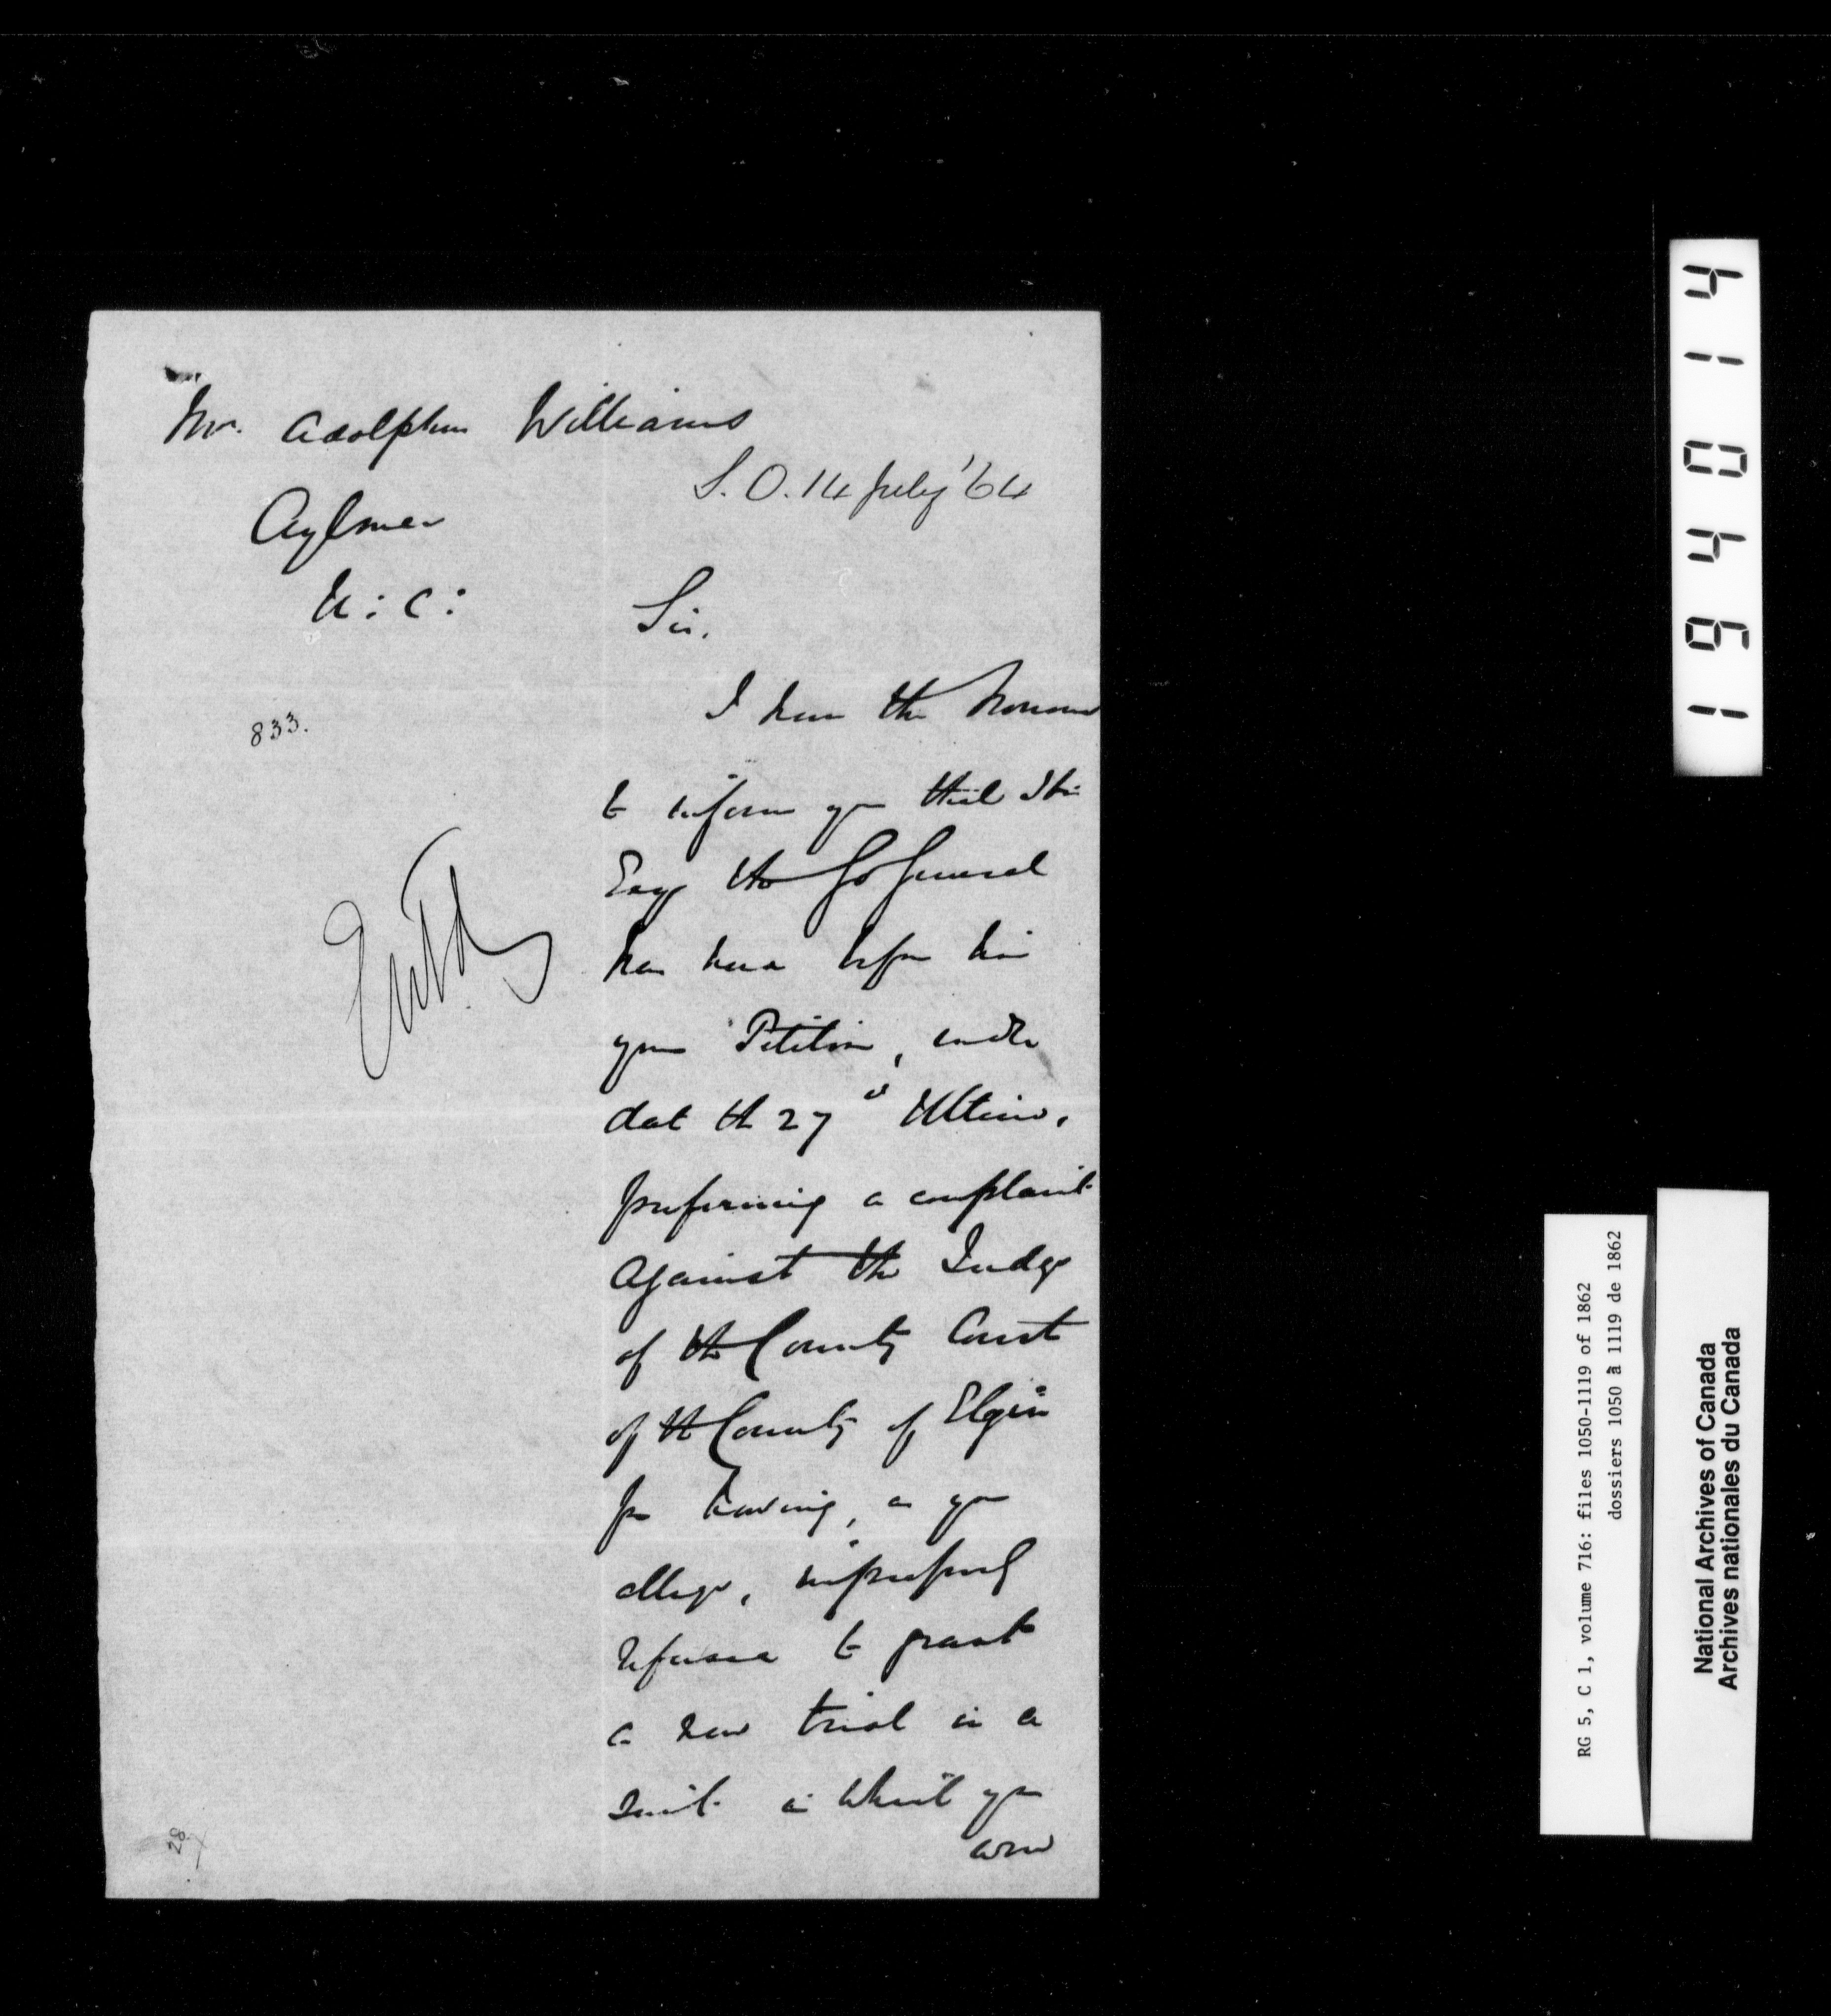 Mr. Adolphus Williams
S.O. 14 July '64
Aylmer
U:C:
Sir.
833.
I have the honour
to inform you that His
Excy the Go General
has had before him
Entd
your Petition, under
date the 27th Ultimo,
preferring a complaint
against the Judge
of the County Court
of the County of Elgin
for having, as you
allege, improperly
refused to grant
a new trial in a
suit in which you
were
28
194014
RG 5, C 1, volume 716: files 1050-1119 of 1862
dossiers 1050 à 1119 de 1862
National Archives of Canada
Archives nationales du Canada